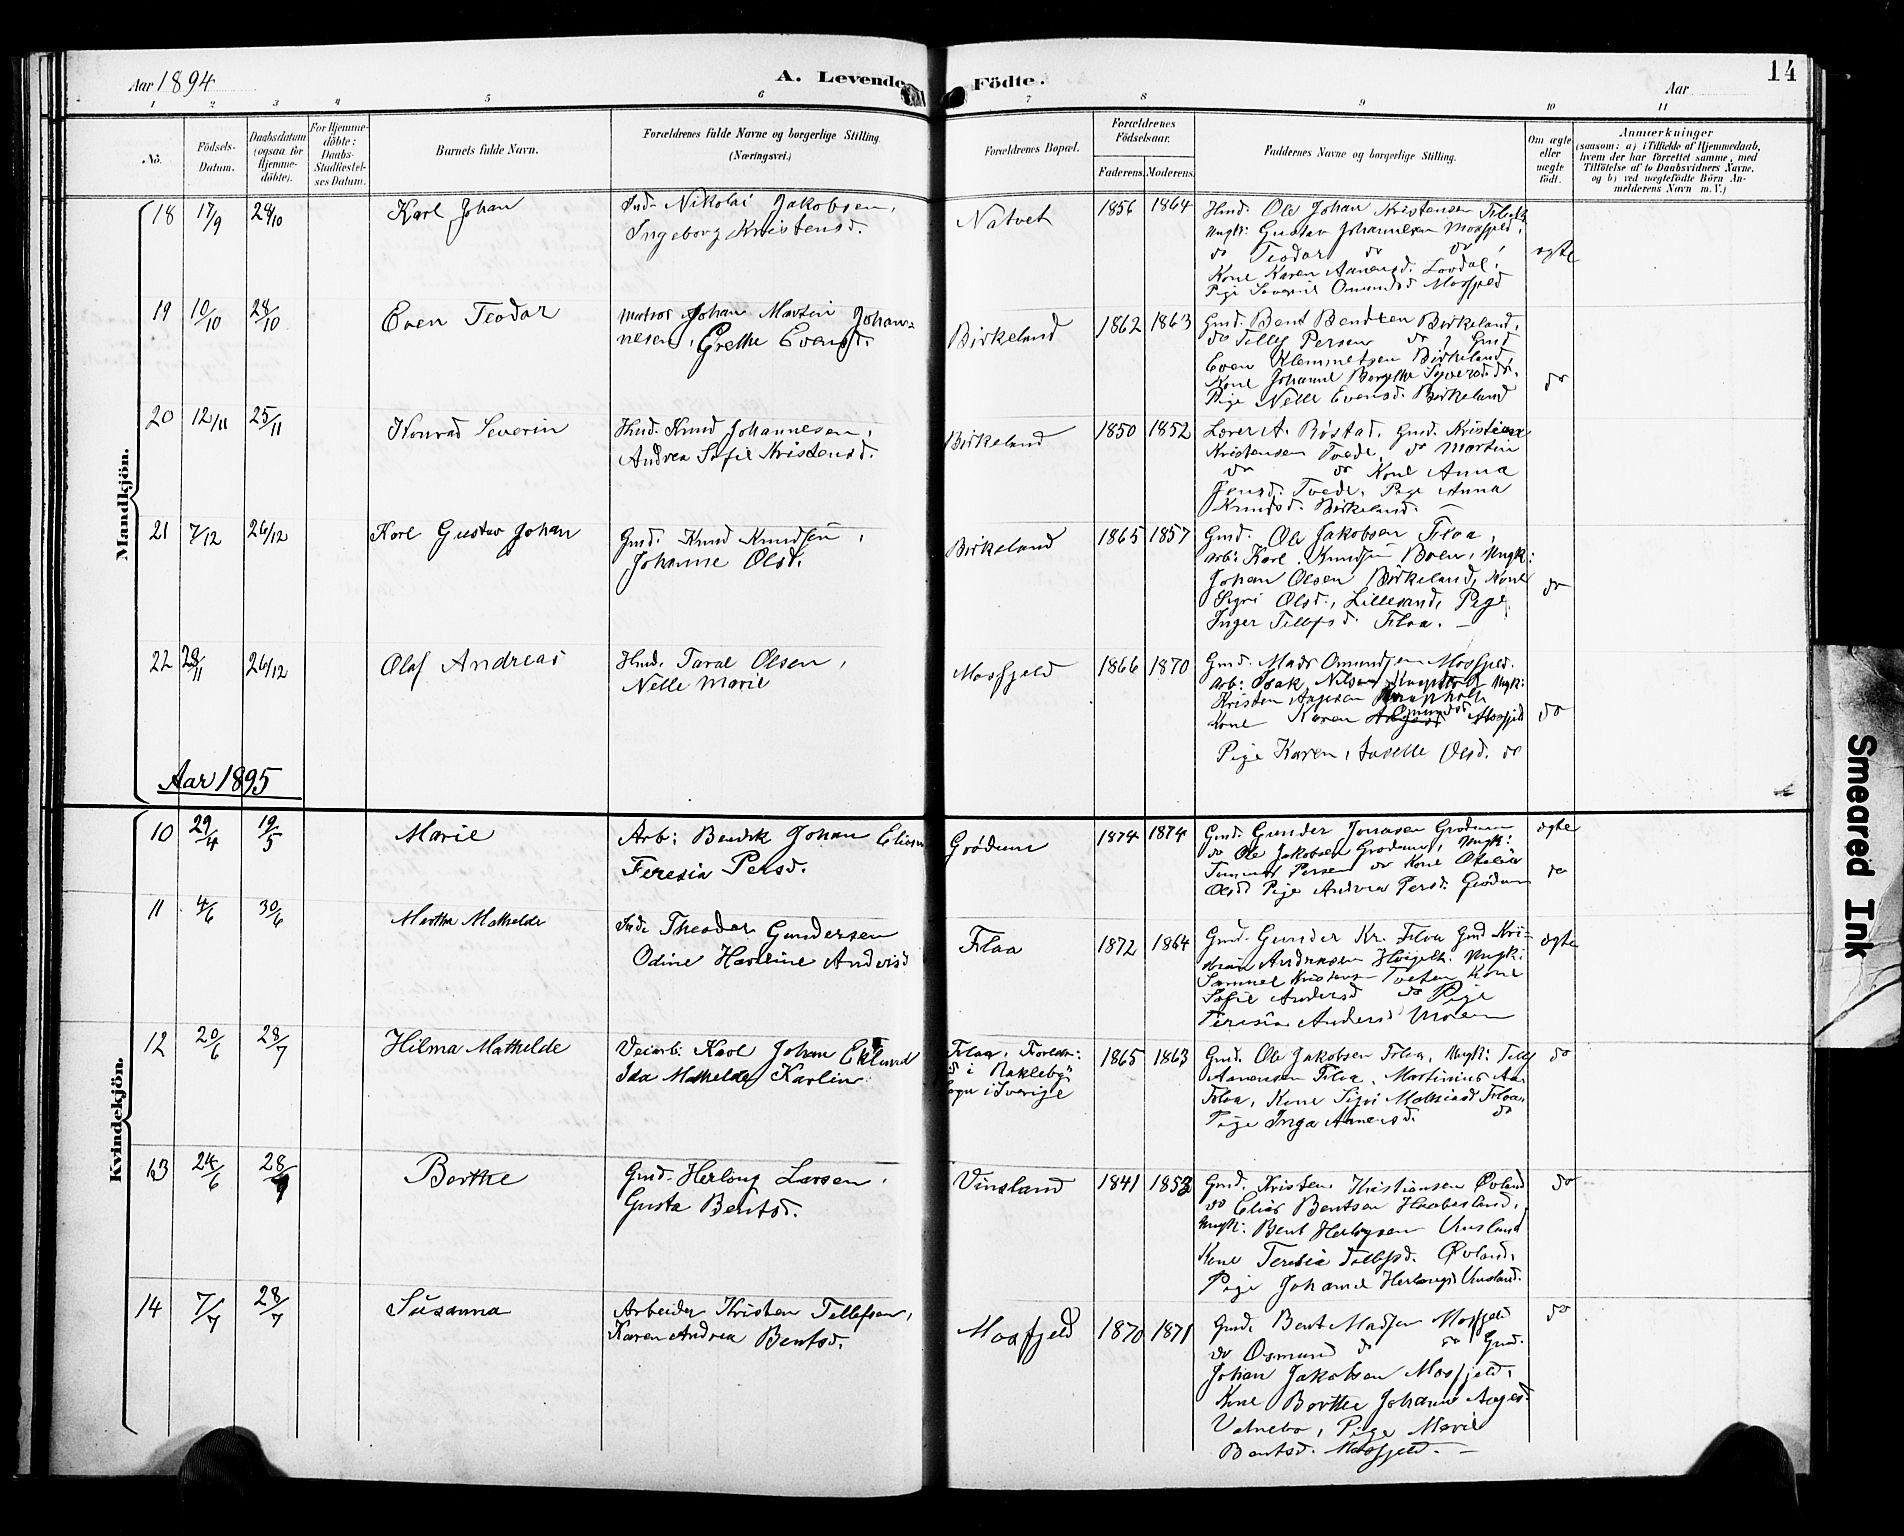 Aar 1894
A. Levende Födte.
Aar
14
1 2 3 4 5 6 7 8 9 10 11
No.
Födsels-
Datum.
Daabsdatum
(ogsaa for
Hjemme-
döbte).
For Hjemme-
döbte:
Daabs-
Stadfæstel-
ses Datum.
Barnets fulde Navn.
Forældrenes fulde Navne og borgerlige Stilling
(Næringsvei.)
Forældrenes Bopæl.
Forældrenes
Födselsaar.
Faderens. Moderens.
Faddernes Navne og borgerlige Stilling.
Om ægte
eller
uægte
födt.
Anmærkninger
(saasom: a) i Tilfælde af Hjemmedaab,
hvem der har forrettet samme, med
Tilföielse af to Daabsvidners Navne,
og b) ved uægtefödte Börn An-
melderens Navn m. V.)
Mandkjön.
18 17/9 28/10 Karl Johan
Ind. Nikolai Jakobsen,
Ingeborg Kristensd.
Natvet 1856 1864
Hmd. Ole Johan Kristensen
Ungk: Gustav Johannesen Mosfjeld,
do Teodor do do,
Kone Karen Aanensd. Lovdal,
Pige Severine Omundsd Mosfjeld
ægte
19 10/10 28/10 Even Teodor
Matros Johan Martin Johan-
nesen, Grethe Evensd.
Birkeland 1862 1863
Gmd. Bent Bendtsen Birkeland,
do Tellef Persen do, Gmd
Even Klemmetsen Birkeland,
Kone Johanne Berthe Syversd. do,
Pige Nelle Evensd. Birkeland
do
20 12/11 25/11 Konrad Severin
Hmd. Knud Johannesen,
Andrea Sofie Kristensd.
Birkeland 1850 1852
Lærer A. Røstad, Gmd. Kristian
Kristensen Tvede, do Martin
do do Kone Anna
Jensd. Tvede, Pige Anna
Knudsd. Birkeland. —
21 7/12 26/12 Karl Gustav Johan
Gmd. Knud Knudsen,
Johanne Olsd.
Birkeland 1865 1857
Gmd. Ole Jakobsen Flaa,
Arb: Karl Knudsen Boen, Ungk:
Johan Olsen Birkeland, Kone
Sigri Olsd., Lillesand, Pige
Inger Tellefsd. Flaa. —
do
22 28/11 26/12 Olaf Andreas
Hmd. Taral Olsen,
Nelle Marie
Mosfjeld 1866 1870
Gmd. Mads Omundsen Mosfjeld.
Arb: Isak Nilsen Ungk:
Kristen Aagesen
Kone Karen Omundsd Mosfjeld
Pige Karen, Olsd. do
do
Aar 1895
Kvindekjön.
10 29/4 19/5 Marie
Arb: Bendik Johan Eliasen
Teresia Persd.
Grødum 1874 1874
Gmd. Gunder Jonasen Grødum
do Ole Jakobsen Grødum, Ungk:
Persen do Kone Otalia
Olsd Pige Andrea Persd. Grødum
ægte
do
11 4/6 30/6 Marthe Mathelde
Ind. Theodor Gundersen
Odine Haveline
Flaa 1872 1864
Gmd. Gunder Kr. Flaa Gmd Kri-
stian Andersen Ungk:
Samuel Tveten Kone
Sofie Andersd do Pige
Teresia Andersd Moen
ægte
12 20/6 28/7 Hilma Mathelde
Veiarb. Karl Johan Eklund
Ida Mathelde Karlin
Flaa,
i
Sogn i Sverige
1865 1863
Gmd. Ole Jakobsen Flaa, Ungk: Tellef
Aanensen Flaa, Martinius Aa.
Flaa, Kone Sigri Mathisd Flaa,
Pige Inga Aanensd. do
do
13 24/6 28/7 Berthe
Gmd. Herlöug Larsen,
Gusta Bentsd.
Vinsland 1841 1853
Gmd. Kristen Kristiansen Øvland
do Elias Bentsen Haabesland,
Ungk: Bent Herlogsen Vinsland
Kone Teresia Tellefsd. Øvland,
Pige Johanne Herlougsd Vinsland.
do
14 7/7 28/7 Susanna
Arbeider Kristen Tellefsen,
Karen Andrea Bentsd.
Mosfjeld 1870 1871
Gmd. Bent Madsen Mosfjeld
do Osmund do do, Gmd.
Johan Jakobsen Mosfjeld,
Kone Berthe Johanne Aagesd.
Vatnebo, Pige Marie
Bentsd. Mosfjeld. —
do
Smeared Ink